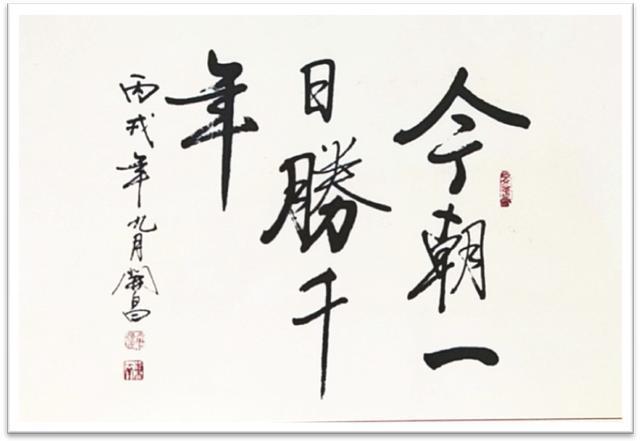 今朝一
日勝千
年
丙戌年九月開昌